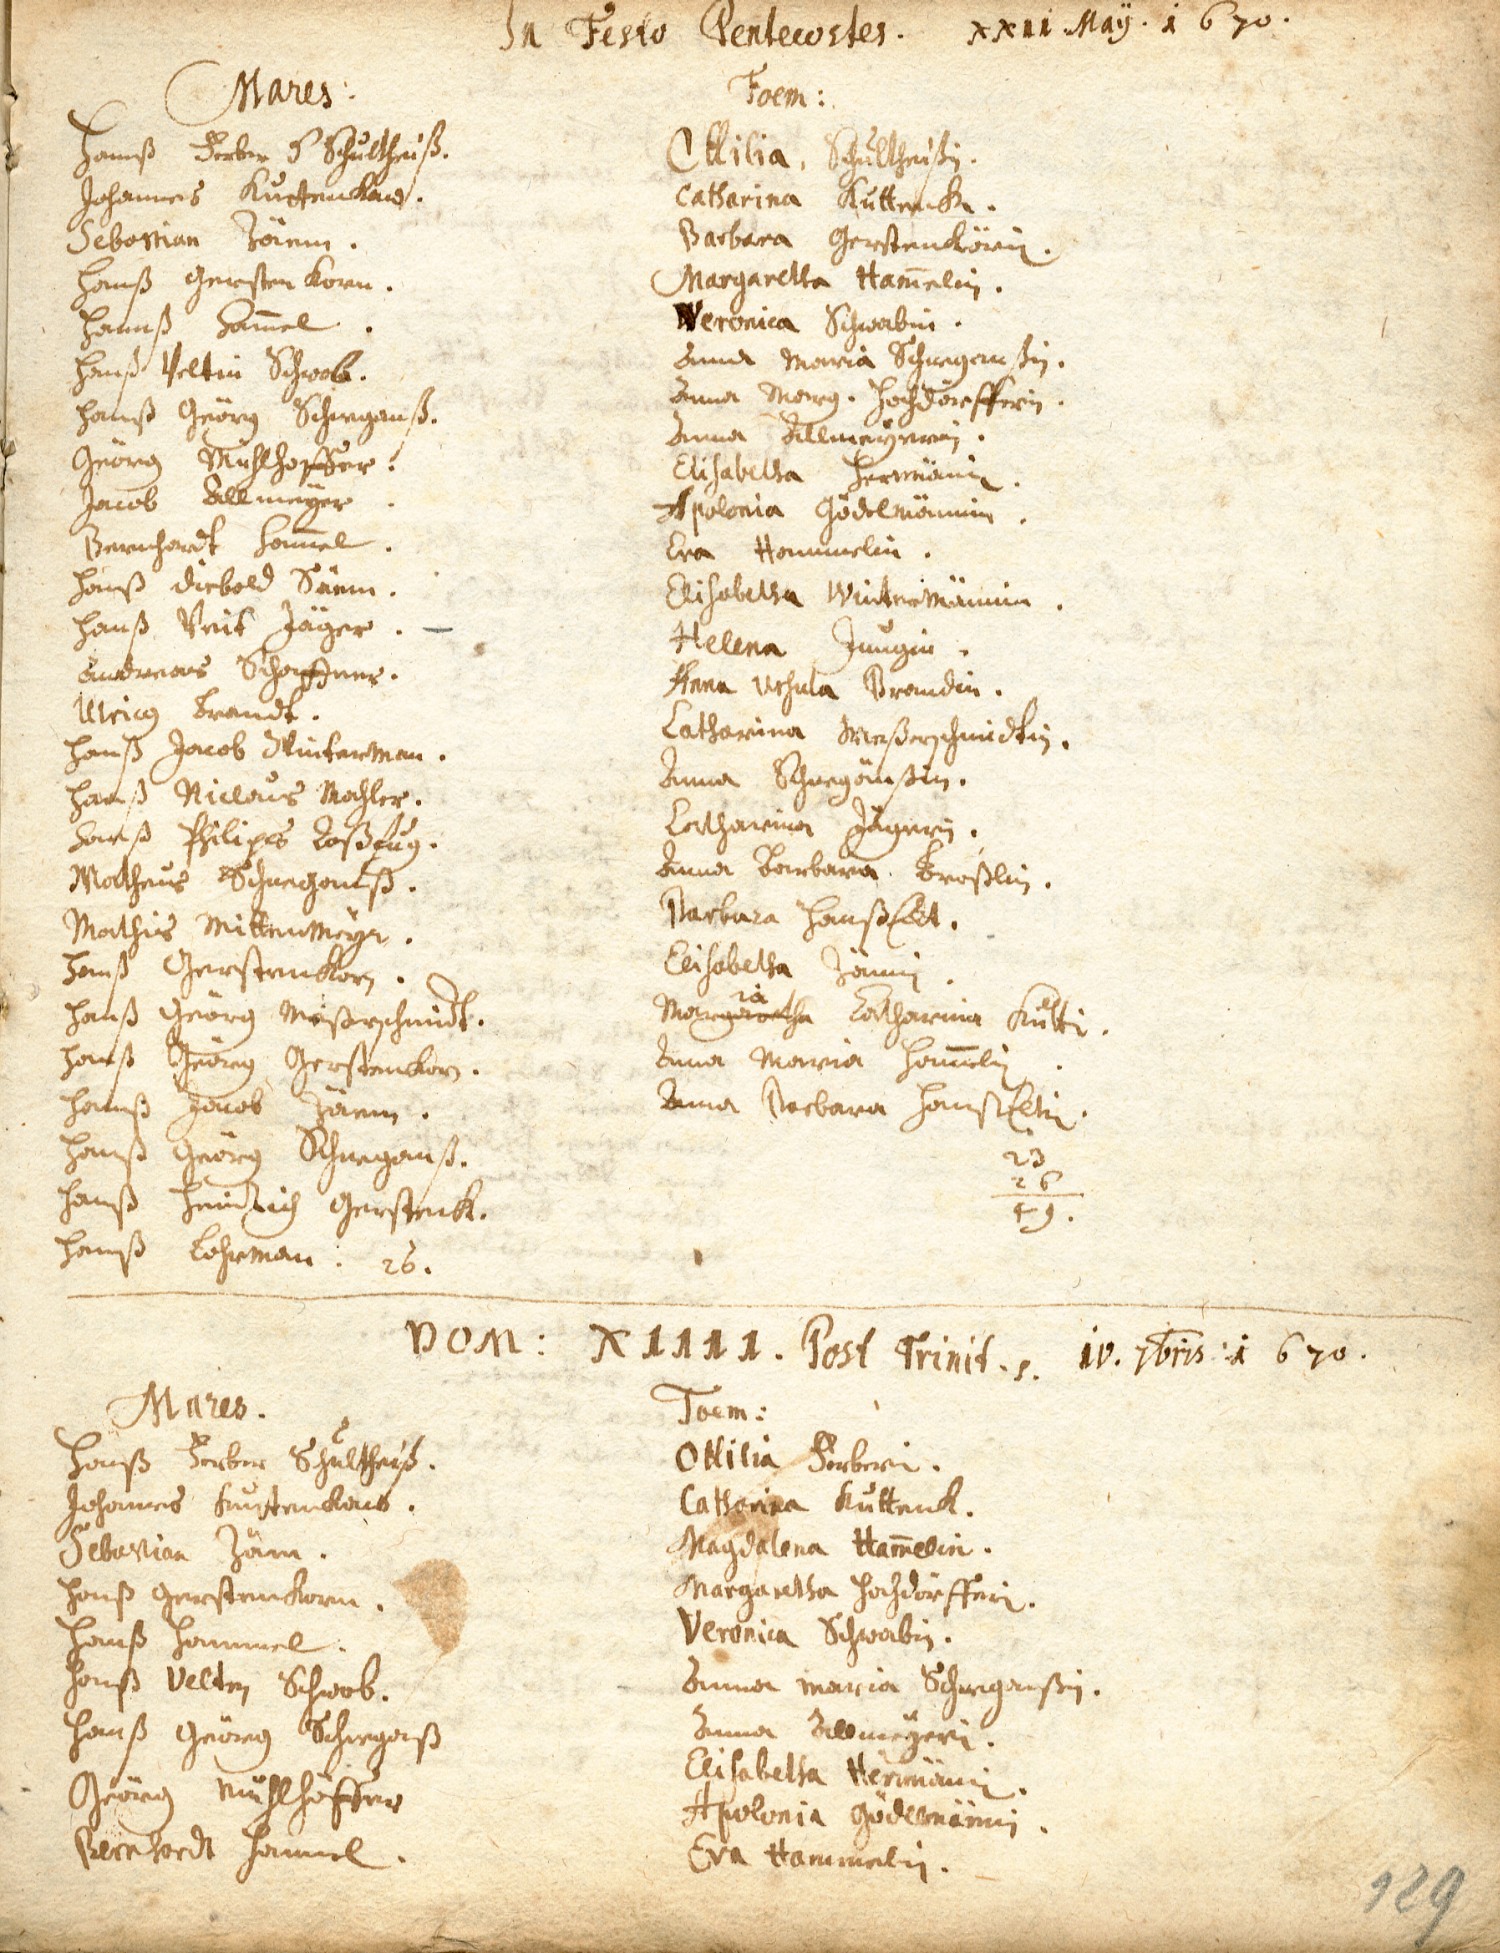 In Festo Pentecostes. XXII. Maÿ. 1670.
Mares:
Hanß Ferber Schultheiß.
Johannes
Sebastian Zäem.
Hanß Gersten Korn.
Hanß Ham̄el.
Hanß Veltin Schwob.
Hanß Geörg Schneganß.
Geörg Mühlhoffer.
Jacob Allmeÿer.
Bernhardt Ham̄el.
Hanß Diebold Säem.
Hanß Veit Jäger. —
Andreas Schaffner.
Ulrich Brandt.
Hanß Jacob Winterman.
Hanß Niclaus Mahler.
Hanß Philips
Matheus Schneganß.
Mathis Mittenmeÿr.
Hanß Gerstenkorn.
Hanß Geörg Meßerschmidt.
Hanß Geörg Gerstenkorn.
Hanß Jacob Zäem.
Hanß Geörg Schneganß.
Hanß Heinrich Gerstenk.
Hanß Lohrman: 26.
Foem:
Ottilia. Schultheißi.
Catharina Kuttenk.
Barbara Gerstenkörni.
Margaretta Ham̄elin.
Veronica Schwabin.
Anna Maria Schneganßin.
Anna Marg. Hochdörfferin.
Anna Allmeÿerin.
Elisabetha Hermänin.
Apolonia Gödelmännin.
Eva Hammelin.
Elisabetha Wintermännin.
Helena Jungin.
Anna Ursula Brandin.
Catharina Meßerschmidtin.
Anna Schnegänßin.
Catharina Jägerin.
Anna Barbara
Barbara
Elisabetha Zämin.
Maria Catharina Kütti.
Anna Maria Ham̄elin.
Anna Barbara
23
26
49.
DOM: XIIII. Post Trinit. s. iv. 7bris. 1670.
Mares.
Hanß Ferber Schultheiß.
Johannes
Sebastian Zäm.
Hanß Gerstenkorn.
Hanß Hammel.
Hanß Velten Schwob.
Hanß Geörg Schnegaß
Geörg Mühlhöffer
Bernhardt Hammel.
Foem:
Ottilia Ferberi.
Catharina Kuttenk.
Magdalena Ham̄elin.
Margaretha Hochdörfferi.
Veronica Schwabin.
Anna Maria Schneganßin.
Anna Allmeÿeri.
Elisabetha Hermänin.
Apolonia Gödelmänni.
Eva Hammelin.
129